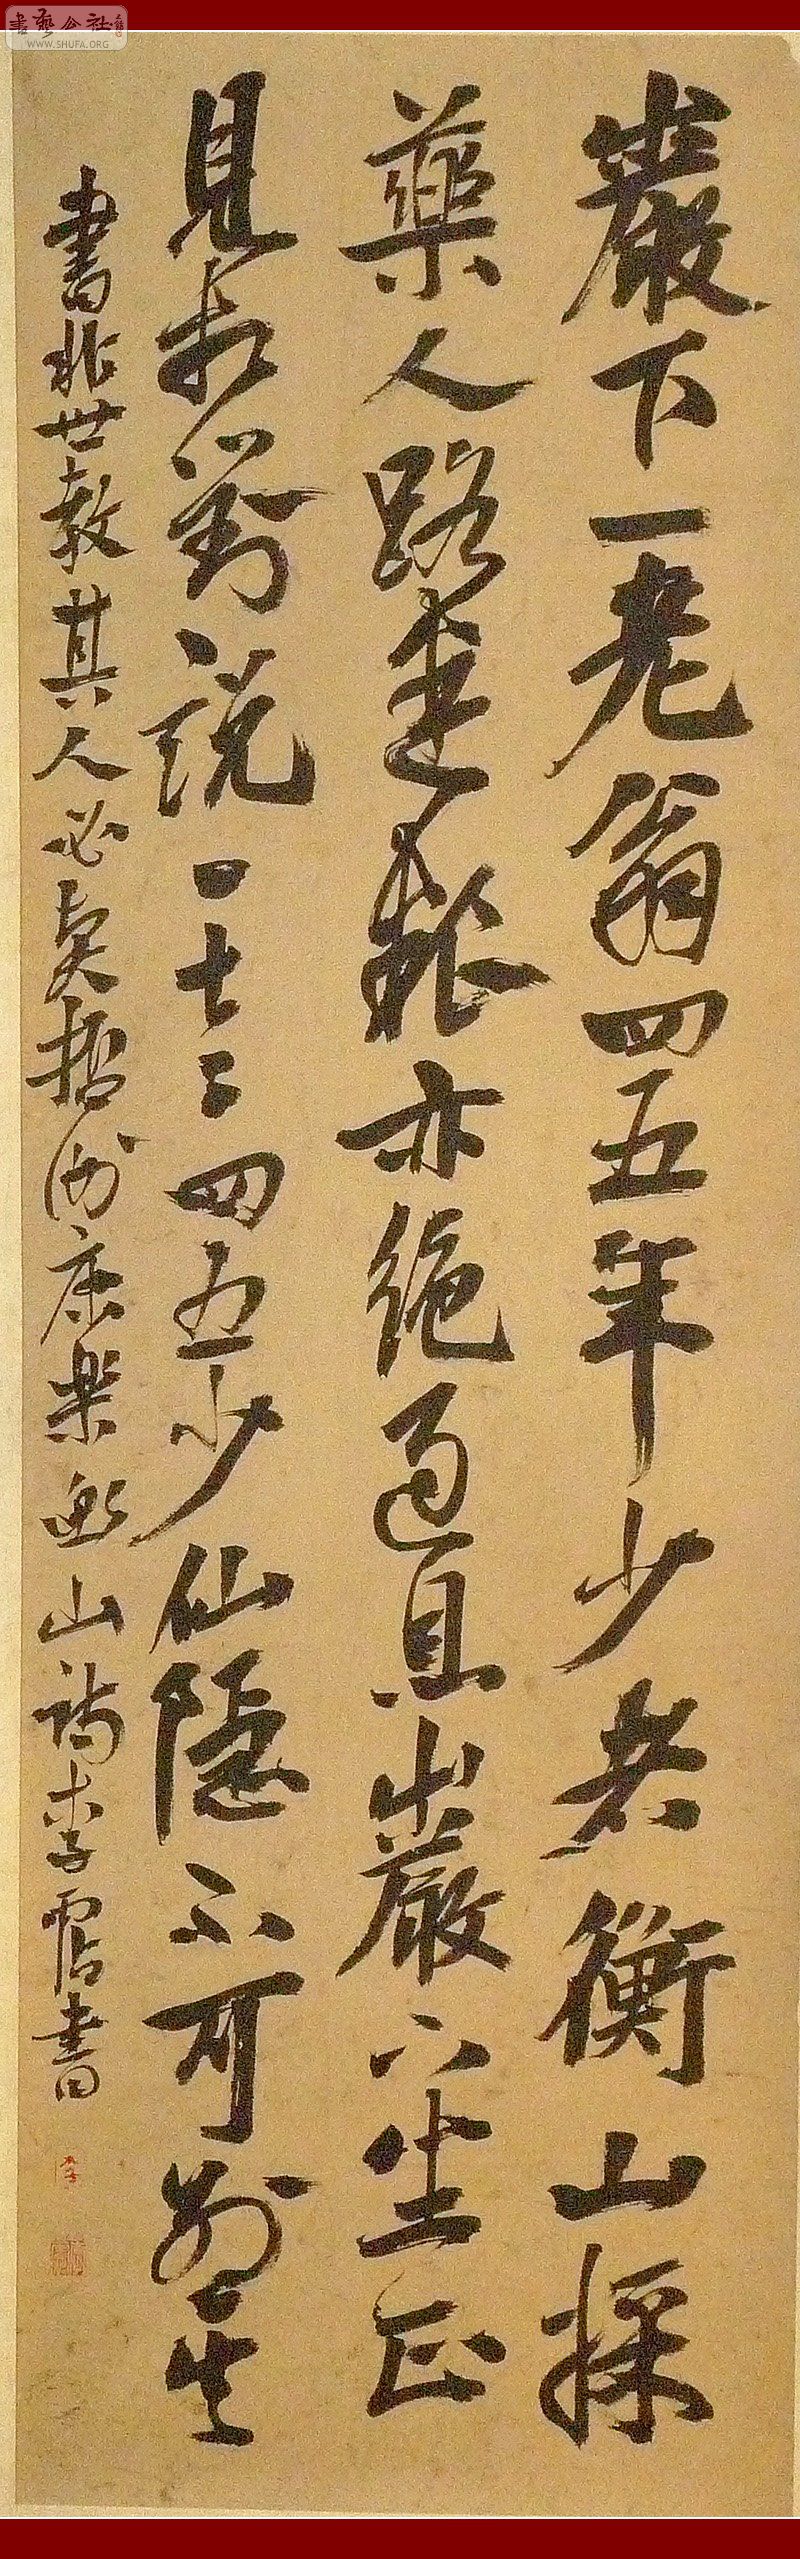 書藝公社
WWW.SHUFA.ORG
巖下一老翁四五年少者衡山採
藥人路迷糧亦絕過息巖下坐正
見相對說一老四五少仙隱不可別其
書非世教其人必賢哲謝康樂山詩李書